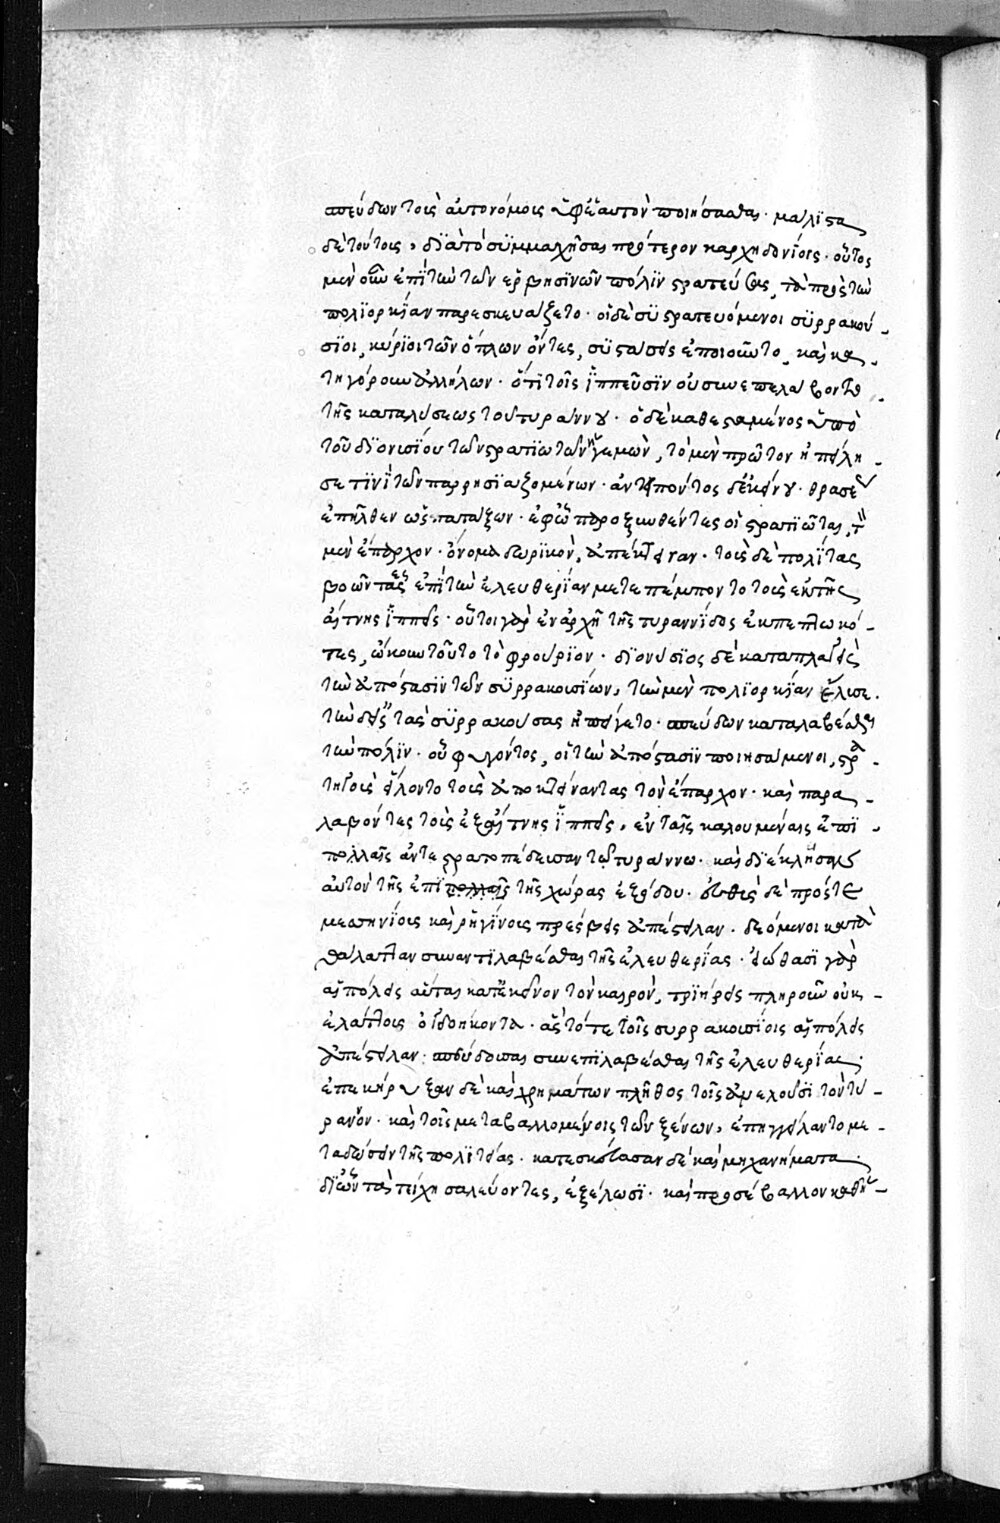 σπεύδων τοὺς αὐτονόμους ὑφ' ἑαυτὸν ποιήσασθαι· μάλιστα
δὲ τούτοις, διὰ τὸ συμμαχῆσαι πρότερον καρχηδονίοις· οὗτος
μὲν οὖν ἐπὶ τὴν τῶν ἐρβησίνων πόλιν στρατεύσας, τὰ πρὸς τὴν
πολιορκίαν παρεσκευάζετο· οἱ δὲ συστρατευόμενοι συρρακού-
σιοι, κύριοι τῶν ὅπλων ὄντες, συστάσεις ἐποιοῦντο, καὶ κα-
τηγόρουν ἀλλήλων· ὅτι τοῖς ἱππεῦσιν οὐ συνεπελάβοντο
τῆς καταλύσεως τοῦ τυράννου· ὁ δὲ καθεσταμένος ὑπὸ
τοῦ διονυσίου τῶν στρατιωτῶν ἡγεμὼν, τὸ μὲν πρῶτον ἠπείλη-
σέ τινι τῶν παρρησιαζομένων· ἀντειπόντος δ' ἐκείνου· θρασέως
ἐπῆλθεν ὡς πατάξων· ἐφ' ᾧ παροξυνθέντες οἱ στρατιῶται, τὸν
μὲν ἔπαρχον· ὄνομα δωρικὸν, ἀπέκτειναν· τοὺς δὲ πολίτας
βοῶντες ἐπὶ τὴν ἐλευθερίαν μετεπέμποντο τοὺς ἐκ τῆς
αἴτνης ἱππεῖς· οὗτοι γὰρ ἐν ἀρχῇ τῆς τυραννίδος ἐκπεπτωκό-
τες, ᾤκουν τοῦτο τὸ φρούριον· διονύσιος δὲ καταπλαγεὶς
τὴν ἀπόστασιν τῶν συρρακουσίων, τὴν μὲν πολιορκίαν ἔλυσε.
τὴν δ' εἰς τὰς συρρακούσας ἠπείγετο· σπεύδων καταλαβέσθαι
τὴν πόλιν· οὗ φυγόντος, οἱ τὴν ἀπόστασιν ποιησάμενοι, στρα-
τηγοὺς εἵλοντο τοὺς ἀποκτείναντας τὸν ἔπαρχον· καὶ παρα-
λαβόντες τοὺς ἐξ αἴτνης ἱππεῖς, ἐν ταῖς καλουμέναις ἐπι-
πολλαῖς ἀντεστρατοπέδευσαν τῷ τυράννῳ· καὶ διέκλεισαν
αὐτὸν τῆς ἐπὶ πολλαῖς τῆς χώρας ἐξόδου· εὐθὺς δὲ πρός τε
μεσσηνίοις καὶ ῥηγίνοις πρέσβεις ἀπέστειλαν· δεόμενοι κατὰ
θάλατταν συναντιλαβέσθαι τῆς ἐλευθερίας· εἰώθασι γὰρ
αἱ πόλεις αὗται κατ' ἐκεῖνον τὸν καιρὸν, τριήρεις πληροῦν οὐκ-
ἐλάττους ὀγδοήκοντα· ἃς τότε τοῖς συρρακουσίοις αἱ πόλεις
ἀπέστειλαν· σπεύδουσαι συνεπιλαβέσθαι τῆς ἐλευθερίας·
ἐπεκήρυξαν δὲ καὶ χρημάτων πλῆθος τοῖς ἀμελοῦσι τὸν τύ-
ραννον· καὶ τοῖς μεταβαλλομένοις τῶν ξένων, ἐπηγγείλαντο με-
ταδώσειν τῆς πολιτείας· κατεσκεύασαν δὲ καὶ μηχανήματα·
δι' ὧν τὰ τείχη σαλεύοντες, ἐξέλωσι· καὶ προσέβαλλον καθ' ἡ-